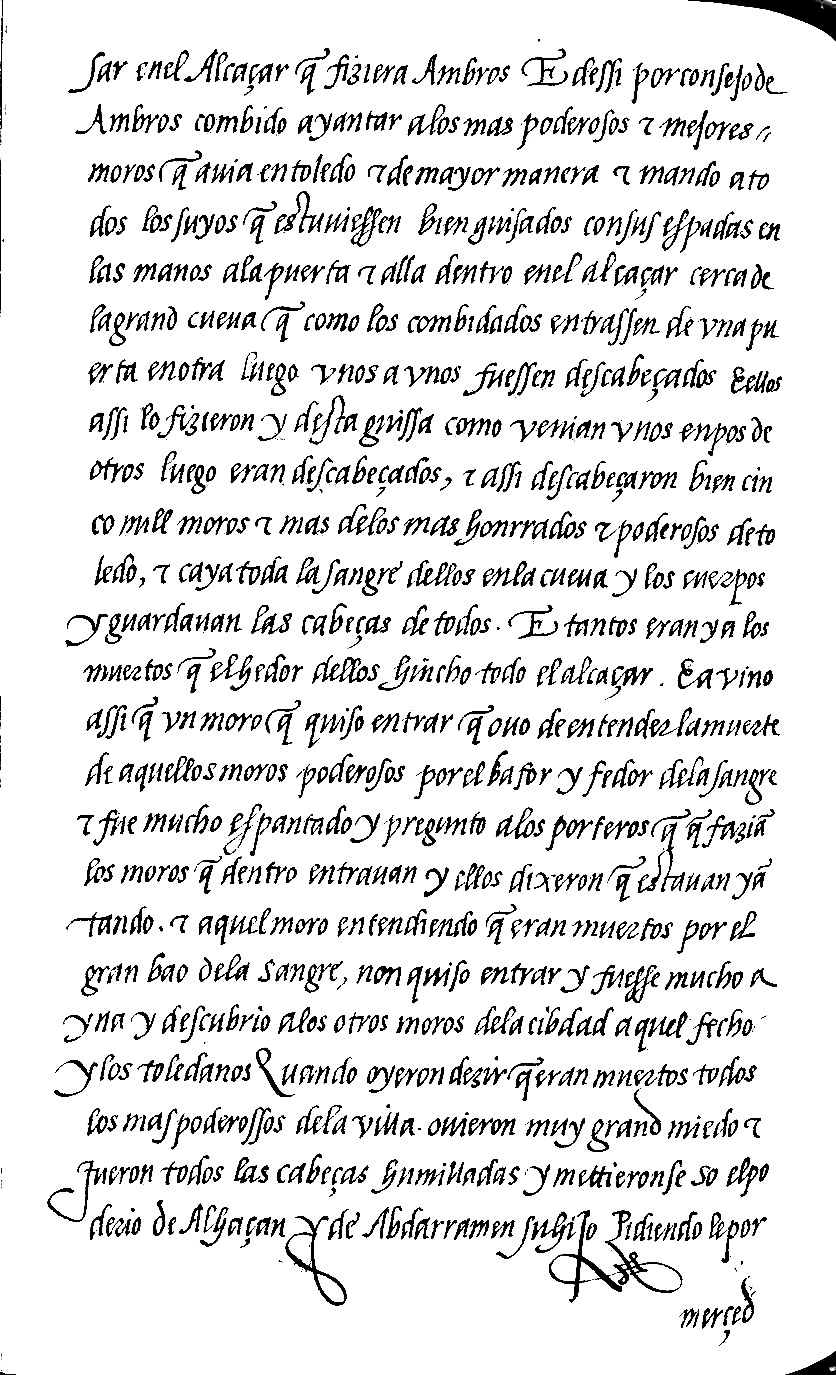 sar enel Alcaçar q̃ fiziera Ambros E dessi por consejo de
Ambros combido a yantar alos mas poderosos τ mejores
moros q̃ auia en toledo τ de mayor manera τ mando a to
dos los suyos q̃ estuuiessen bien guisados con sus espadas en
las manos ala puerta τ alla dentro enel alcaçar cerca de
la grand cueua q̃ como los combidados entrassen de vna pu
erta en otra luego vnos a vnos fuessen descabeçados E ellos
assi lo fizieron y desta guissa como venian vnos en pos de
otros luego eran descabeçados, τ assi descabeçaron bien cin
co mill moros τ mas delos mas honrrados τ poderosos de to
ledo, τ caya toda la sangre dellos en la cueua y los cuerpos
y guardauan las cabeças de todos. E tantos eran ya los
muertos q̃ el hedor dellos hincho todo el alcaçar. E a vino
assi q̃ vn moro q̃ quiso entrar q̃ ouo de entender la muerte
de aquellos moros poderosos por el bafor y fedor dela sangre
τ fue mucho espantado y pregunto alos porteros q̃ q̃ faziã
los moros q̃ dentro entrauan y ellos dixeron q̃ estauan yã
tando. τ aquel moro entendiendo q̃ eran muertos por el
gran bao dela sangre, non quiso entrar y fuesse mucho a
yna y descubrio alos otros moros dela cibdad aquel fecho
y los toledanos Quando oyeron dezir q̃ eran muertos todos
los mas poderossos dela villa. ouieron muy grand miedo τ
fueron todos las cabeças humilladas y mettieronse so el po
derio de Alhaçan y de Abdarramen su hijo Pidiendo le por
merçed